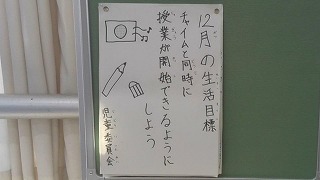 12月の生活目標
チャイムと同時に
授業が開始できるように
しよう
児童委員会